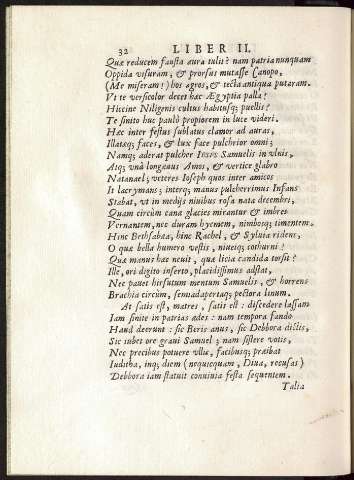 32 LIBER II.
Quæ reducem fausta aura tulit? nam patria nunquam
Oppida visuram, & prorsus mutasse Canopo,
(Me miseram!) hos agros, & tecta antiqua putaram.
Vt te versicolor decet hæc Ægyptia palla?
Hiccine Niligenis cultus habitusq; puellis?
Te simito huc paulò propiorem in luce videri.
Hæc inter festus sublatus clamor ad auras,
Illatæq; faces, & lux face pulchrior omni;
Namq; aderat pulcher Iesus Samuelis in vlnis,
Atq; vnà longæuus Amos, & vertice glabro
Natanael; veteres Ioseph quos inter amicos
It lacrymans; interq; manus pulcherrimus Infans
Stabat, vt in medijs niuibus rosa nata decembri,
Quam circùm cana glacies mirantur & imbres
Vernantem, nec duram hyemem, nimbosq; timentem.
Hinc Bethsabæa, hinc Rachel, & Sylvia rident,
O quæ bella humero vestis, niueiq; cothurni!
Quæ manus hæc neuit, quæ licia candida torsit?
Ille, ori digito inserto, placidissimus adstat,
Nec pauet hirsutum mentum Samuelis, & horrens
Brachia circùm, semiadapertaq; pectora linum.
At satis est, matres, satis est: discedere lassam
Iam sinite in patrias ædes: nam tempora fando
Haud deerunt: sic Beris anus, sic Debbora dictis,
Sic iubet ore graui Samuel; nam sistere votis,
Nec precibus potuere vllæ, facibusq; præibat
Iuditha, inq; diem (nequicquam, Diua, recusas)
Debbora iam statuit conuiuia festa sequentem.
Talia